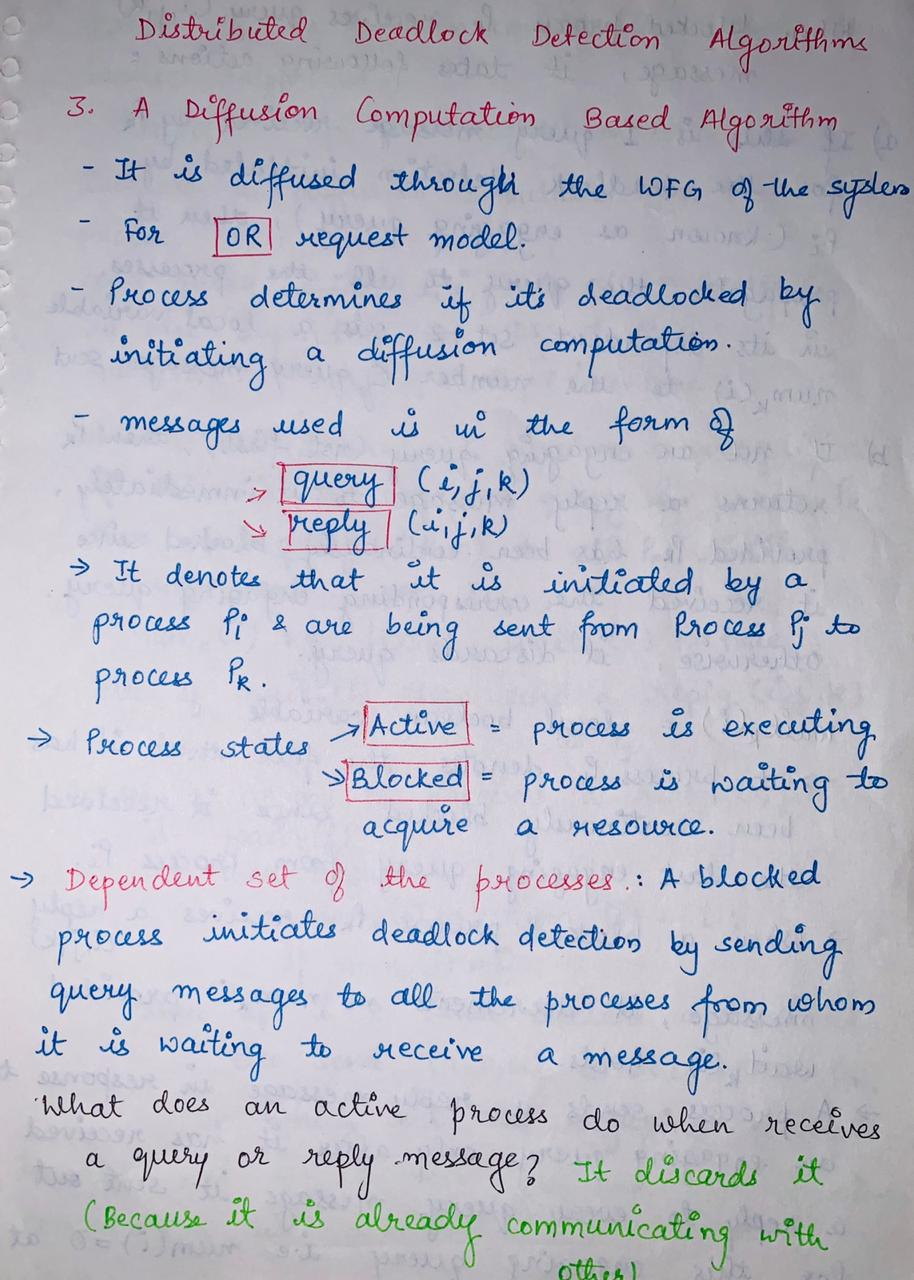 Distributed Deadlock Detection Algorithms
3. A Diffusion Computation Based Algorithm
- It is diffused through the WFG of the system
- For OR request model.
- Process determines if it's deadlocked by
initiating a diffusion computation.
- messages used is in the form of
→ query (i,j,k)
→ reply (i,j,k)
→ It denotes that it is initiated by a
process Pi & are being sent from Process Pj to
process Pk.
→ Process states → Active = process is executing
→ Blocked = process is waiting to
acquire a resource.
→ Dependent set of the processes.: A blocked
process initiates deadlock detection by sending
query messages to all the processes from whom
it is waiting to receive a message.
What does an active process do when receives
a query or reply message? It discards it
(Because it is already communicating with
other)